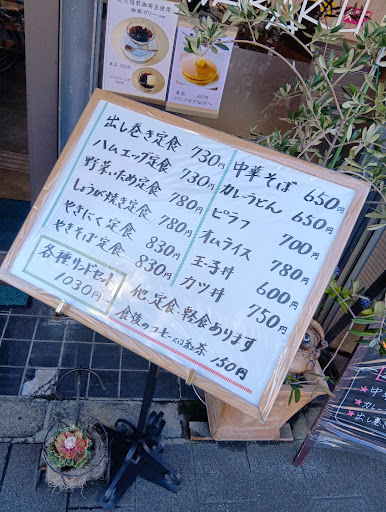 出し巻き定食 730円
ハムエッグ定食 730円
野菜いため定食 780円
しょうが焼き定食 780円
やきにく定食 830円
やきそば定食 830円
各種サンドセット
1030円〜
中華そば 650円
カレーうどん 650円
ピラフ 700円
オムライス 780円
玉子丼 600円
カツ丼 750円
他、定食・軽食あります
食後のコーヒー又は紅茶 150円